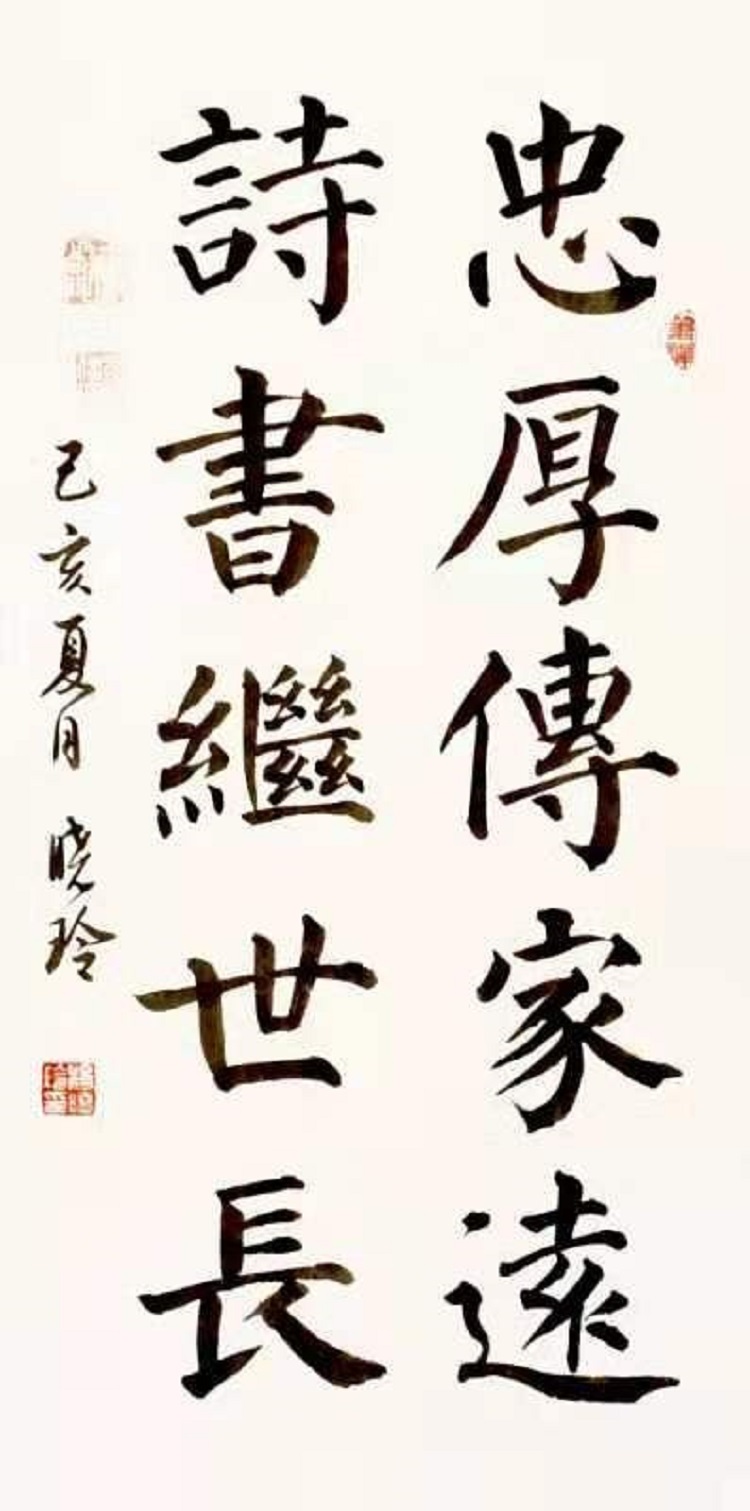 忠厚傳家遠
詩書繼世長
己亥夏月 晓玲